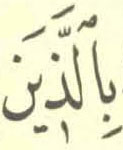 بِٱلَّذِينَ